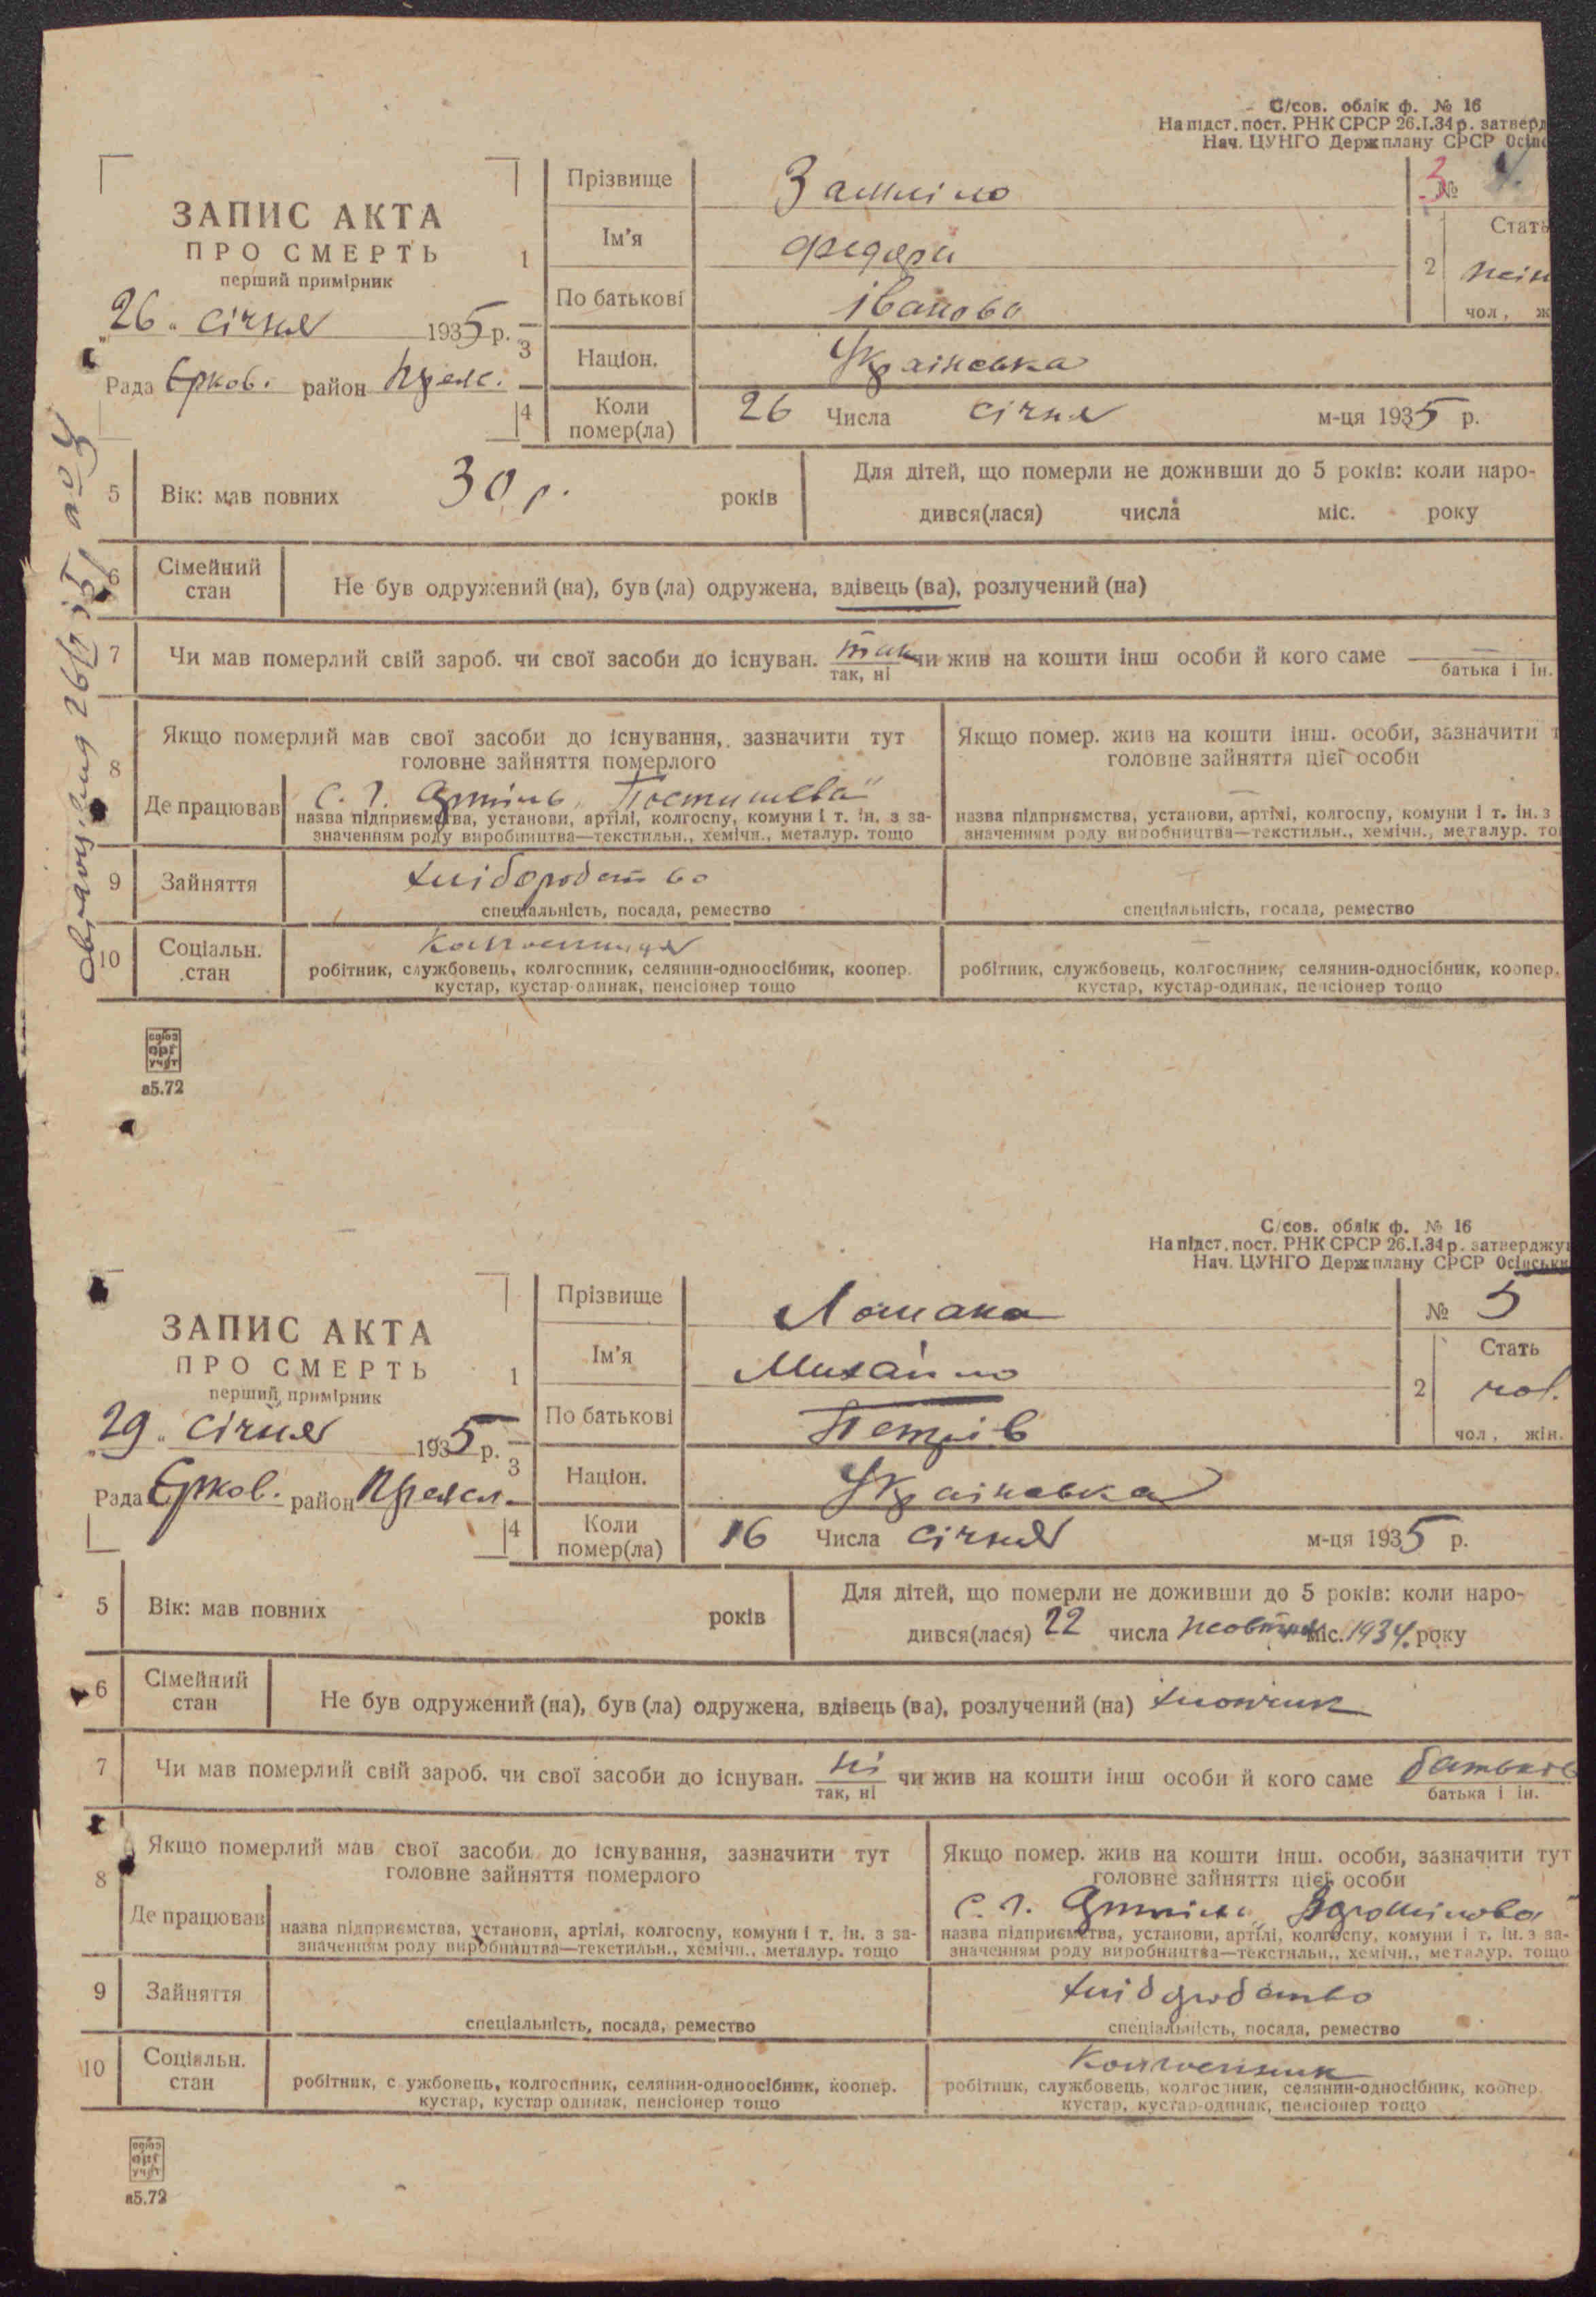 С/сов. облік ф. № 16
На підст. пост. РНК СРСР 26.I.34 р. затверд
Нач. ЦУНГО Держплану СРСР Осінс
ЗАПИС АКТА
ПРО СМЕРТЬ
перший примірник
„26„ січня 1935 р.
Рада Ерков. район
1 Прізвище
Ім'я
По батькові Іванова
№ 4.
2 Стать
чол, ж
3 Націон. Українська
4 Коли помер(ла) 26 Числа січня м-ця 1935 р.
5 Вік: мав повних 30 р. років
Для дітей, що померли не доживши до 5 років: коли наро-
дився(лася) числа міс. року
6 Сімейний стан Не був одружений (на), був (ла) одружена, вдівець (ва), розлучений (на)
7 Чи мав померлий свій зароб. чи свої засоби до існуван. так чи жив на кошти інш особи й кого саме —
так, ні батька і ін.
8 Якщо померлий мав свої засоби до існування, зазначити тут
головне зайняття померлого
Якщо помер. жив на кошти інш. особи, зазначити т
головне зайняття цієї особи
Де працював С. г. Артіль „Постишева"
назва підприємства, установи, артілі, колгоспу, комуни і т. ін. з за-
значенням роду виробництва—текстильн., хемічн., металур. тощо
назва підприємства, установи, артілі, колгоспу, комуни і т. ін. з
значенням роду виробництва—текстильн., хемічн., металур. то
9 Зайняття хліборобство
спеціальність, посада, ремество
спеціальність, посада, ремество
10 Соціальн. стан колгоспниця
робітник, службовець, колгоспник, селянин-одноосібник, коопер.
кустар, кустар одинак, пенсіонер тощо
робітник, службовець, колгоспник, селянин-односібник, коопер.
кустар, кустар-одинак, пенсіонер тощо
союз
орг
учёт
а5.72
С/сов. облік ф. № 16
На підст. пост. РНК СРСР 26.I.34 р. затверджу
Нач. ЦУНГО Держплану СРСР Осінськи
ЗАПИС АКТА
ПРО СМЕРТЬ
перший примірник
„29„ січня 1935 р.
Рада Ерков. район Переясл.
1 Прізвище Лошака
Ім'я Михайло
По батькові Петрів
№ 5
2 Стать чол.
чол, жін.
3 Націон. Українська
4 Коли помер(ла) 16 Числа січня м-ця 1935 р.
5 Вік: мав повних років
Для дітей, що померли не доживши до 5 років: коли наро-
дився(лася) 22 числа жовтня міс. 1934. року
6 Сімейний стан Не був одружений (на), був (ла) одружена, вдівець (ва), розлучений (на) хлопчик
7 Чи мав померлий свій зароб. чи свої засоби до існуван. ні чи жив на кошти інш особи й кого саме батьків
так, ні батька і ін.
8 Якщо померлий мав свої засоби до існування, зазначити тут
головне зайняття померлого
Якщо помер. жив на кошти інш. особи, зазначити тут
головне зайняття цієї особи
Де працював
С. г. Артіль „Ворошилова"
назва підприємства, установи, артілі, колгоспу, комуни і т. ін. з за-
значенням роду виробництва—текстильн., хемічн., металур. тощо
назва підприємства, установи, артілі, колгоспу, комуни і т. ін. з за-
значенням роду виробництва—текстильн., хемічн., металур. тощо
9 Зайняття
хліборобство
спеціальність, посада, ремество
спеціальність, посада, ремество
10 Соціальн. стан
колгоспник
робітник, службовець, колгоспник, селянин-одноосібник, коопер.
кустар, кустар одинак, пенсіонер тощо
робітник, службовець, колгоспник, селянин-односібник, коопер.
кустар, кустар-одинак, пенсіонер тощо
союз
орг
учёт
а5.72